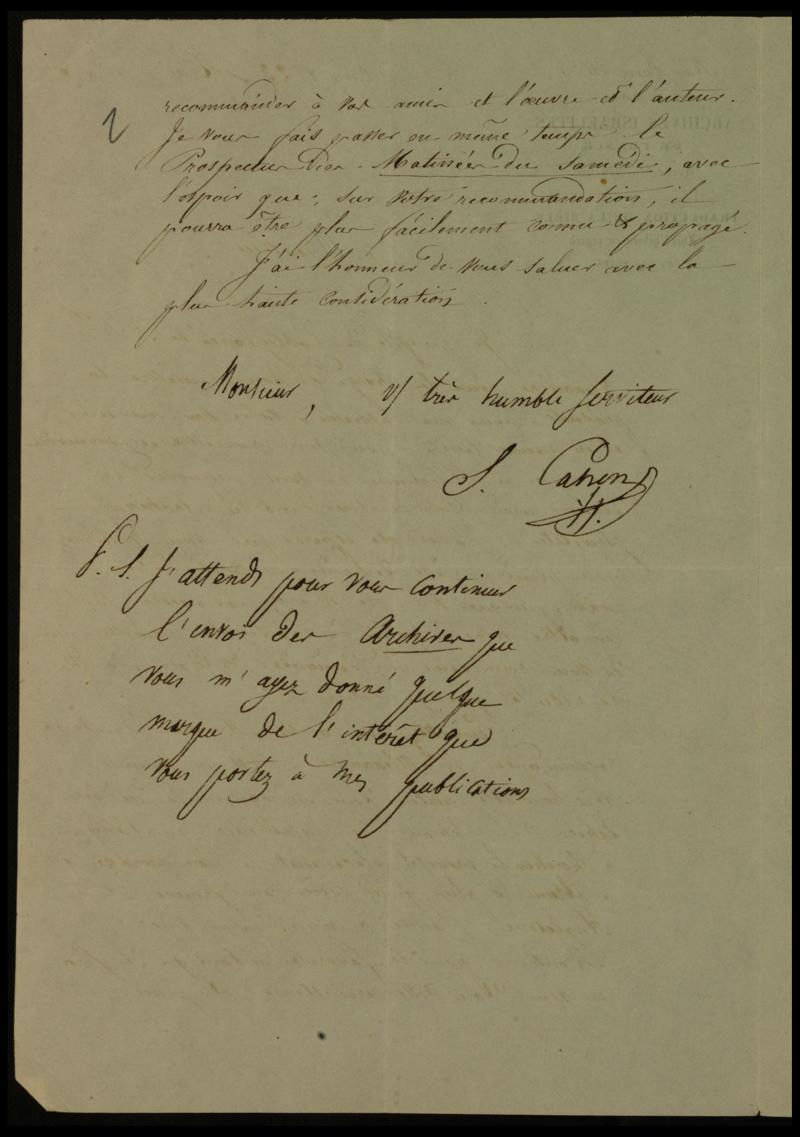 2
recommander à vos amis et l'œuvre et l'auteur.
Je vous fais passer en même temps le
Prospectus des Matinées du Samedi, avec
l'espoir que, sur votre recommandation, il
pourra être plus facilement connu & propagé.
J'ai l'honneur de vous saluer avec la
plus haute considération.
Monsieur, v/ très humble serviteur
S. Cahen
P. S. J'attends pour vous continuer
l'envoi des Archives que
vous m'ayez donné quelque
marque de l'intérêt que
vous portez à mes publications